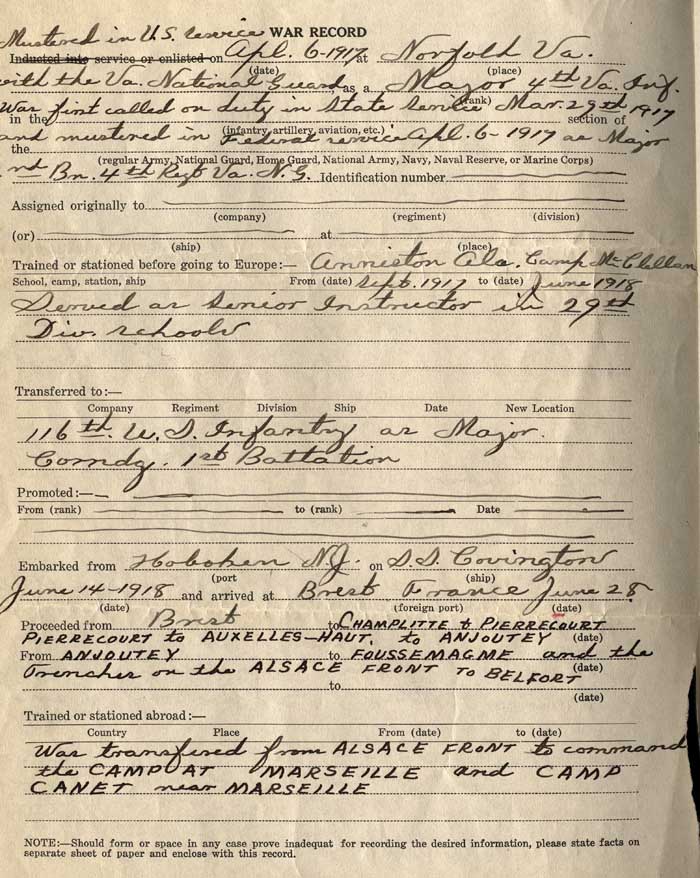 Mustered in U.S. service WAR RECORD
Inducted into service or enlisted on Apl. 6-1917 at Norfolk Va.
(date) (place)
with the Va. National Guard as a Major 4th Va. Inf.
(rank)
Was first called on duty in State Service Mar. 29th 1917
in the section of
(infantry, artillery, aviation, etc.)
and mustered in Federal service Apl. 6-1917 as Major
the
(regular Army, National Guard, Home Guard, National Army, Navy, Naval Reserve, or Marine Corps)
nd Bn. 4th Regt Va. N.G. Identification number
Assigned originally to
(company) (regiment) (division)
(or) at
(ship) (place)
Trained or stationed before going to Europe:— Anniston Ala. Camp McClellan
School, camp, station, ship From (date) Sept. 1917 to (date) June 1918
Served as Senior Instructor in 29th
Div. schools
Transferred to:—
Company Regiment Division Ship Date New Location
116th. U.S. Infantry as Major.
Comdg. 1st Battation
Promoted:—
From (rank) to (rank) Date
Embarked from Hoboken N.J. on S.S. Covington
(port (ship)
June 14-1918 and arrived at Brest France June 28
(date) (foreign port) (date)
Proceeded from Brest to CHAMPLITTE & PIERRECOURT
PIERRECOURT to AUXELLES-HAUT, to ANJOUTEY (date)
From ANJOUTEY to FOUSSEMAGME and the
Trenches on the ALSACE FRONT TO BELFORT (date)
to
(date)
Trained or stationed abroad:—
Country Place From (date) to (date)
Was transfired from ALSACE FRONT to command
the CAMP AT MARSEILLE and CAMP
CANET near MARSEILLE
NOTE:—Should form or space in any case prove inadequat for recording the desired information, please state facts on
separate sheet of paper and enclose with this record.